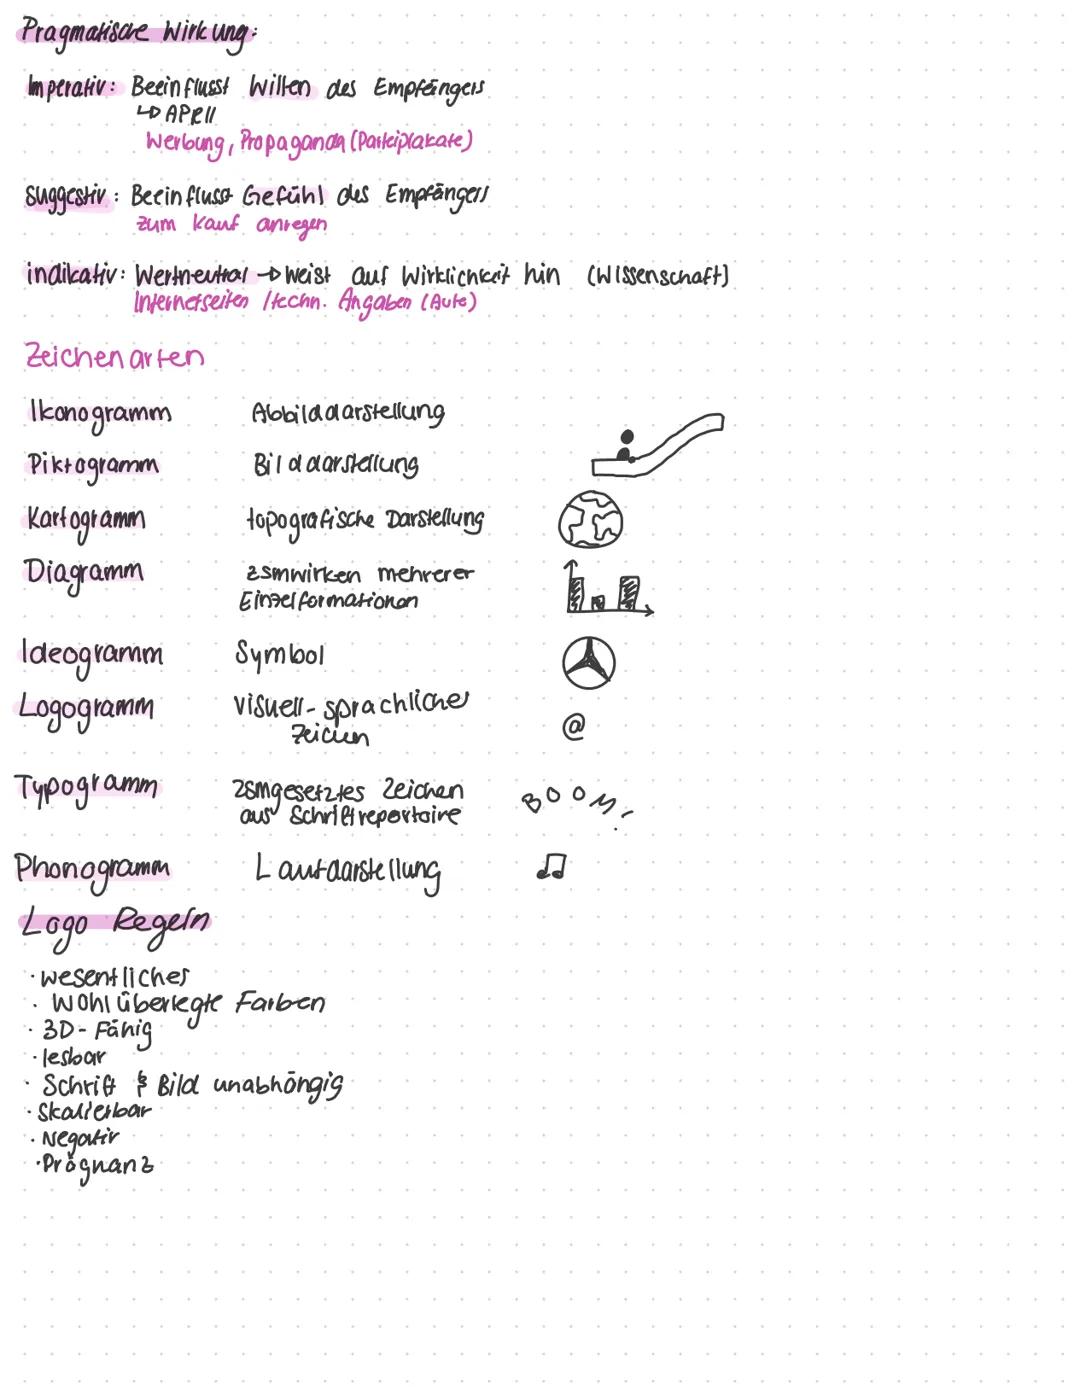 Pragmatische Wirkung:
Imperativ: Beeinflusst Willen des Empfängers
↳ APPell
Werbung, Propaganda (Parteiplakate)
suggestiv: Beeinflusst Gefühl des Empfängers
zum Kauf anregen
indikativ: Wertneutral → weist auf Wirklichkeit hin (Wissenschaft)
Internetseiten / techn. Angaben (Auto)
Zeichenarten
Ikonogramm Abbilddarstellung
Piktogramm Bilddarstellung
Kartogramm topografische Darstellung
Diagramm zsmwirken mehrerer
Einzelformationen
Ideogramm Symbol
Logogramm visuell-sprachliche
Zeichen
@
Typogramm zsmgesetztes Zeichen
aus Schriftrepertoire
BOOM!
Phonogramm Lautdarstellung
Logo Regeln
· wesentliches
· Wohl überlegte Farben
· 3D-Fähig
· lesbar
· Schrift & Bild unabhängig
· Skalierbar
· Negativ
· Prägnanz